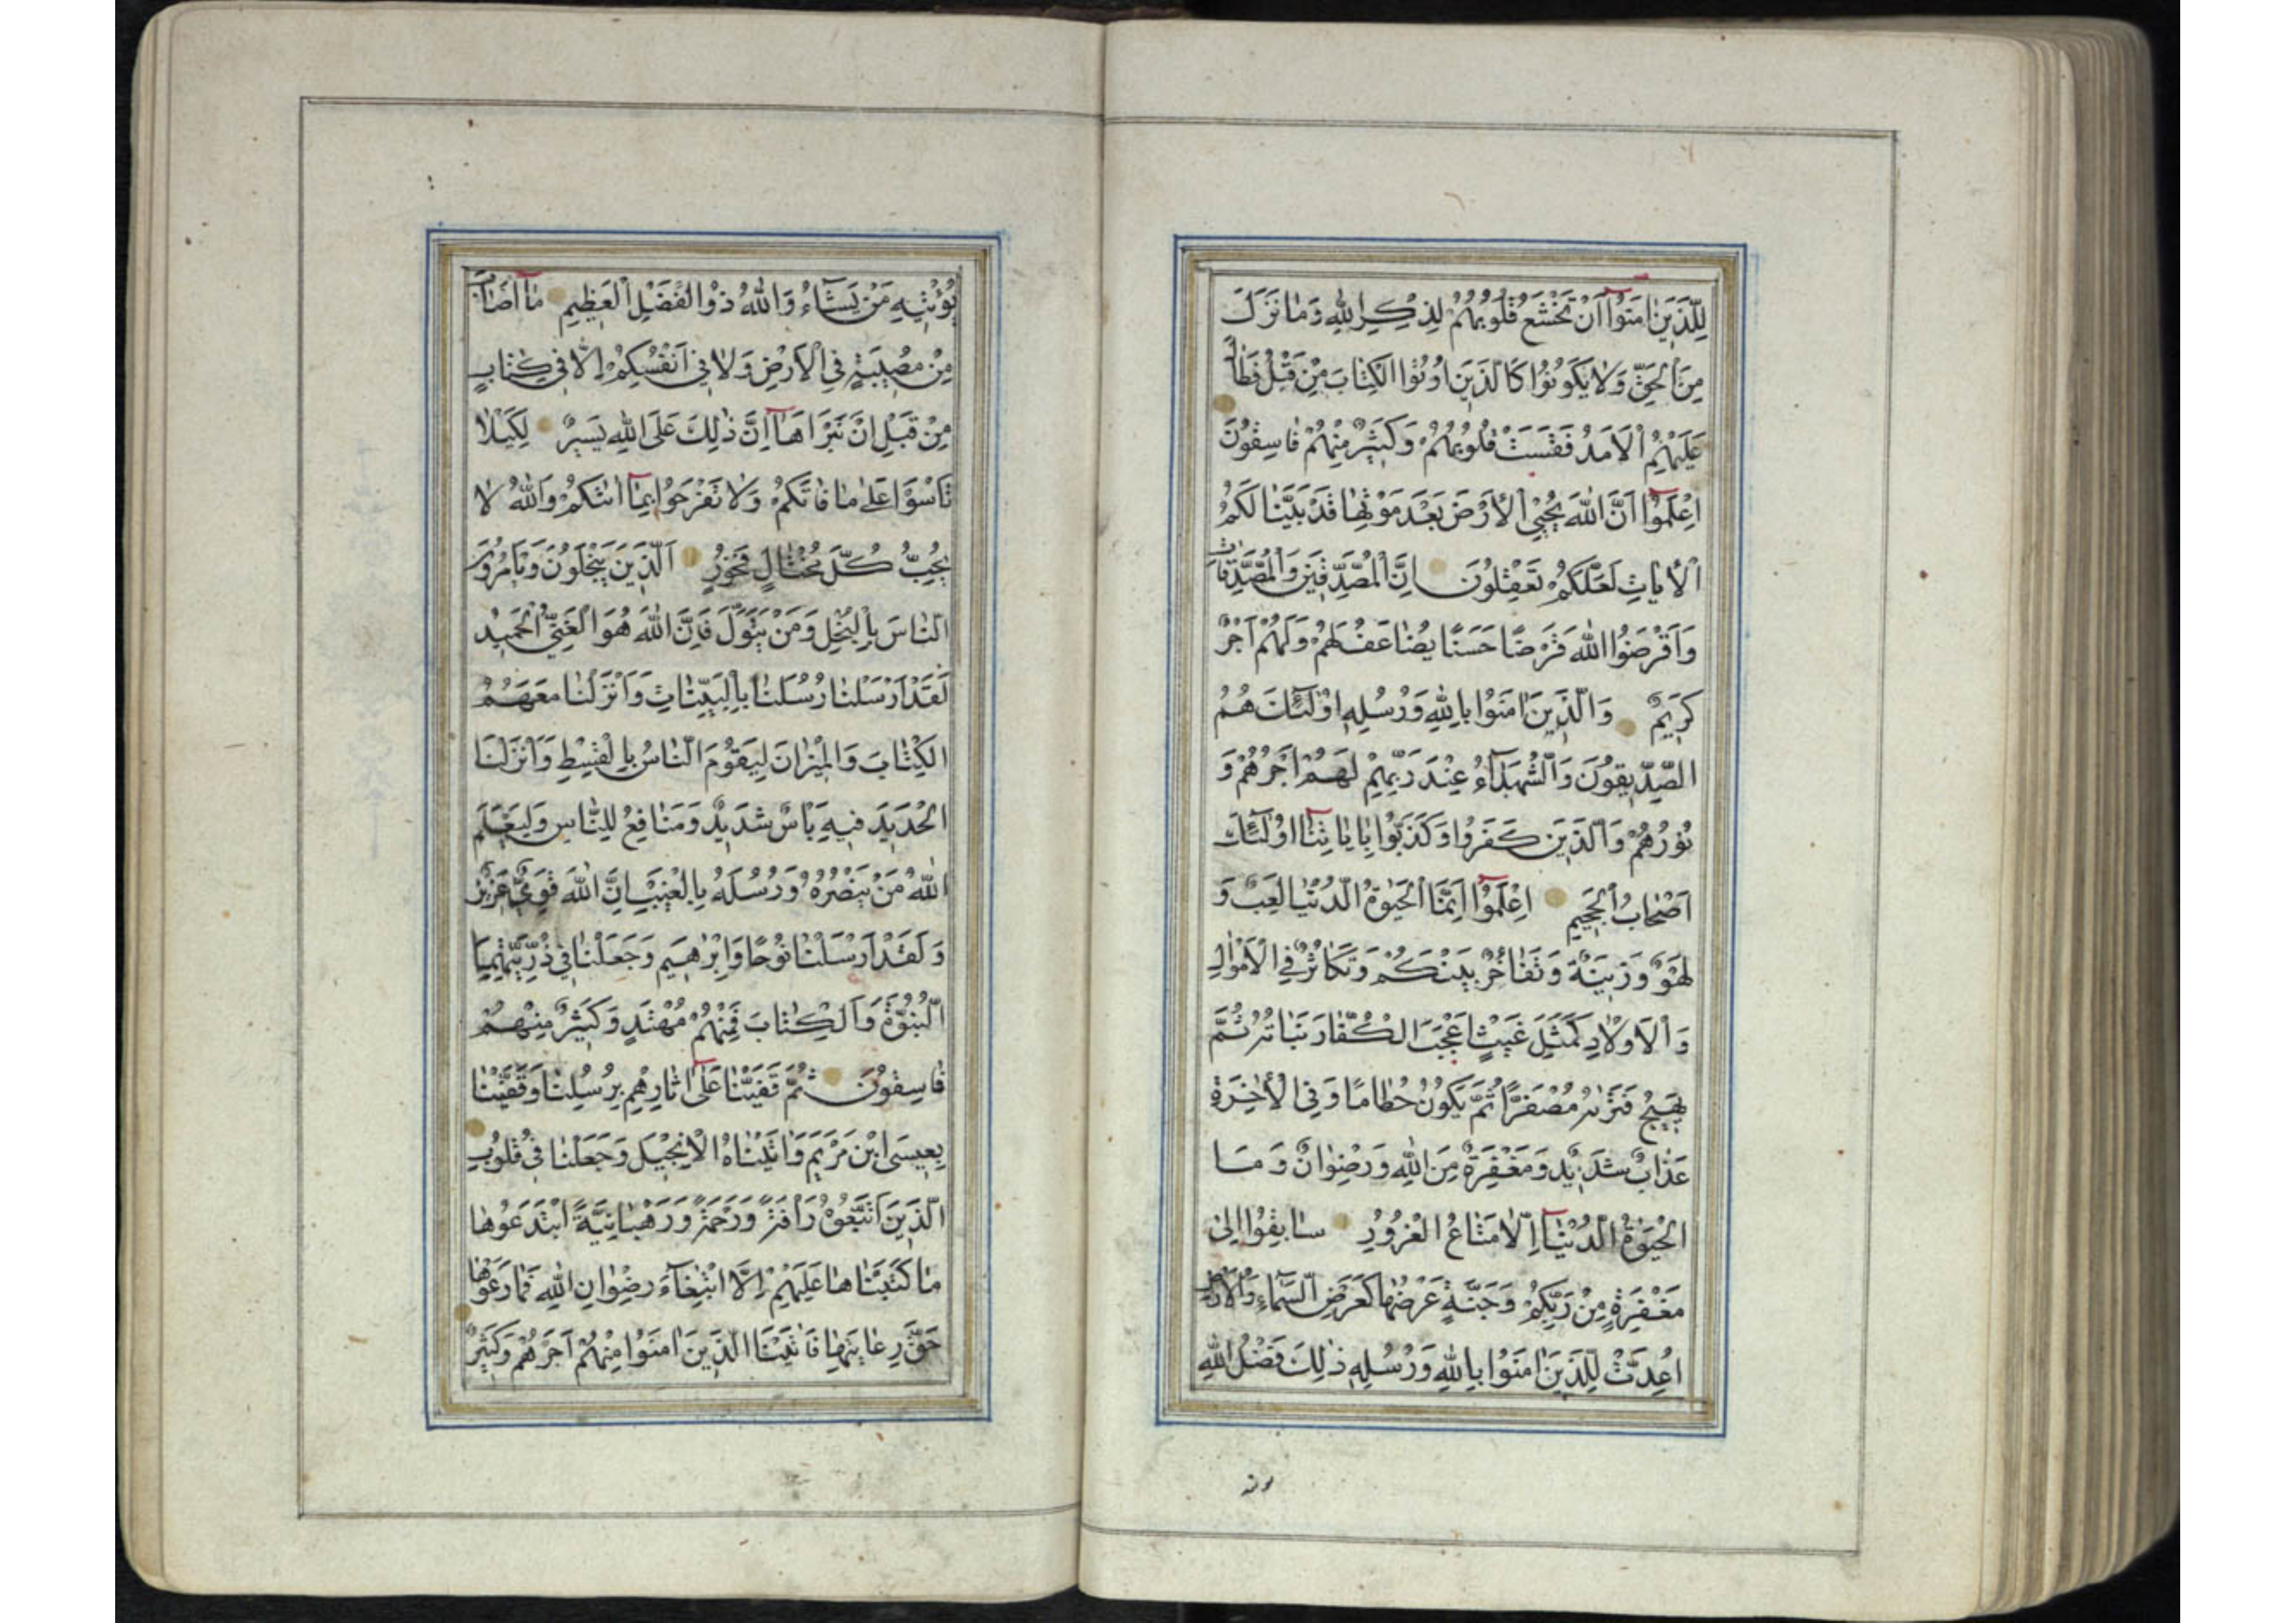 لِلَّذِينَ اٰمَنُوٓا اَنْ تَخْشَعَ قُلُوبُهُمْ لِذِكْرِ اللّٰهِ وَمَا نَزَلَ
مِنَ الْحَقِّ وَلَا يَكُونُوا كَالَّذِينَ اُوتُوا الْكِتَابَ مِنْ قَبْلُ فَطَالَ
عَلَيْهِمُ الْاَمَدُ فَقَسَتْ قُلُوبُهُمْ وَكَثِيرٌ مِنْهُمْ فَاسِقُونَ
اِعْلَمُوٓا اَنَّ اللّٰهَ يُحْيِي الْاَرْضَ بَعْدَ مَوْتِهَا قَدْ بَيَّنَّا لَكُمُ
الْاٰيَاتِ لَعَلَّكُمْ تَعْقِلُونَ اِنَّ الْمُصَّدِّقِينَ وَالْمُصَّدِّقَاتِ
وَاَقْرَضُوا اللّٰهَ قَرْضًا حَسَنًا يُضَاعَفُ لَهُمْ وَلَهُمْ اَجْرٌ
كَرِيمٌ وَالَّذِينَ اٰمَنُوا بِاللّٰهِ وَرُسُلِهِ اُولٰٓئِكَ هُمُ
الصِّدِّيقُونَ وَالشُّهَدَآءُ عِنْدَ رَبِّهِمْ لَهُمْ اَجْرُهُمْ وَ
نُورُهُمْ وَالَّذِينَ كَفَرُوا وَكَذَّبُوا بِاٰيَاتِنَآ اُولٰٓئِكَ
اَصْحَابُ الْجَحِيمِ اِعْلَمُوٓا اَنَّمَا الْحَيٰوةُ الدُّنْيَا لَعِبٌ وَ
لَهْوٌ وَزِينَةٌ وَتَفَاخُرٌ بَيْنَكُمْ وَتَكَاثُرٌ فِي الْاَمْوَالِ
وَالْاَوْلَادِ كَمَثَلِ غَيْثٍ اَعْجَبَ الْكُفَّارَ نَبَاتُهُ ثُمَّ
يَهِيجُ فَتَرٰىهُ مُصْفَرًّا ثُمَّ يَكُونُ حُطَامًا وَفِي الْاٰخِرَةِ
عَذَابٌ شَدِيدٌ وَمَغْفِرَةٌ مِنَ اللّٰهِ وَرِضْوَانٌ وَمَا
الْحَيٰوةُ الدُّنْيَآ اِلَّا مَتَاعُ الْغُرُورِ سَابِقُوا اِلٰى
مَغْفِرَةٍ مِنْ رَبِّكُمْ وَجَنَّةٍ عَرْضُهَا كَعَرْضِ السَّمَآءِ وَالْاَرْضِ
اُعِدَّتْ لِلَّذِينَ اٰمَنُوا بِاللّٰهِ وَرُسُلِهِ ذٰلِكَ فَضْلُ اللّٰهِ
يُؤْتِيهِ مَنْ يَشَآءُ وَاللّٰهُ ذُو الْفَضْلِ الْعَظِيمِ مَآ اَصَابَ
مِنْ مُصِيبَةٍ فِي الْاَرْضِ وَلَا فِي اَنْفُسِكُمْ اِلَّا فِي كِتَابٍ
مِنْ قَبْلِ اَنْ نَبْرَاَهَآ اِنَّ ذٰلِكَ عَلَى اللّٰهِ يَسِيرٌ لِكَيْلَا
تَاْسَوْا عَلٰى مَا فَاتَكُمْ وَلَا تَفْرَحُوا بِمَآ اٰتٰىكُمْ وَاللّٰهُ لَا
يُحِبُّ كُلَّ مُخْتَالٍ فَخُورٍ اَلَّذِينَ يَبْخَلُونَ وَيَاْمُرُونَ
النَّاسَ بِالْبُخْلِ وَمَنْ يَتَوَلَّ فَاِنَّ اللّٰهَ هُوَ الْغَنِيُّ الْحَمِيدُ
لَقَدْ اَرْسَلْنَا رُسُلَنَا بِالْبَيِّنَاتِ وَاَنْزَلْنَا مَعَهُمُ
الْكِتَابَ وَالْمِيزَانَ لِيَقُومَ النَّاسُ بِالْقِسْطِ وَاَنْزَلْنَا
الْحَدِيدَ فِيهِ بَاْسٌ شَدِيدٌ وَمَنَافِعُ لِلنَّاسِ وَلِيَعْلَمَ
اللّٰهُ مَنْ يَنْصُرُهُ وَرُسُلَهُ بِالْغَيْبِ اِنَّ اللّٰهَ قَوِيٌّ عَزِيزٌ
وَلَقَدْ اَرْسَلْنَا نُوحًا وَاِبْرٰهِيمَ وَجَعَلْنَا فِي ذُرِّيَّتِهِمَا
النُّبُوَّةَ وَالْكِتَابَ فَمِنْهُمْ مُهْتَدٍ وَكَثِيرٌ مِنْهُمْ
فَاسِقُونَ ثُمَّ قَفَّيْنَا عَلٰٓى اٰثَارِهِمْ بِرُسُلِنَا وَقَفَّيْنَا
بِعِيسَى ابْنِ مَرْيَمَ وَاٰتَيْنَاهُ الْاِنْجِيلَ وَجَعَلْنَا فِي قُلُوبِ
الَّذِينَ اتَّبَعُوهُ رَاْفَةً وَرَحْمَةً وَرَهْبَانِيَّةً ابْتَدَعُوهَا
مَا كَتَبْنَاهَا عَلَيْهِمْ اِلَّا ابْتِغَآءَ رِضْوَانِ اللّٰهِ فَمَا رَعَوْهَا
حَقَّ رِعَايَتِهَا فَاٰتَيْنَا الَّذِينَ اٰمَنُوا مِنْهُمْ اَجْرَهُمْ وَكَثِيرٌ